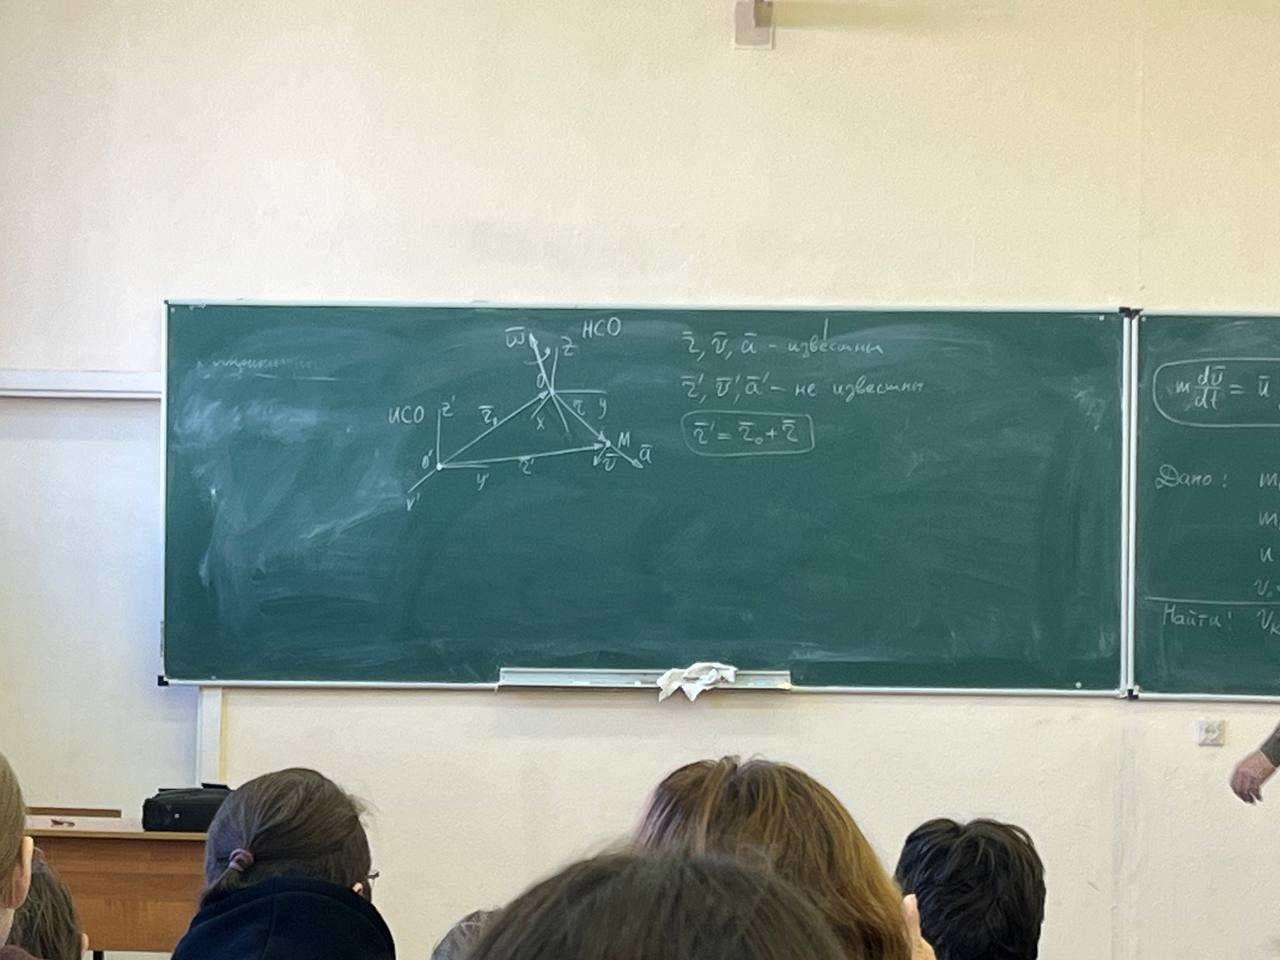 НСО
ω̅
z
O
x
y
r̅
ИСО
z'
r̅₀
O'
x'
y'
r̅'
M
v̅
a̅
r̅, v̅, a̅ - известны
r̅', v̅', a̅' - не известны
r̅' = r̅₀ + r̅
m dv̅/dt = u̅
Дано: m
m
u
v
Найти: v